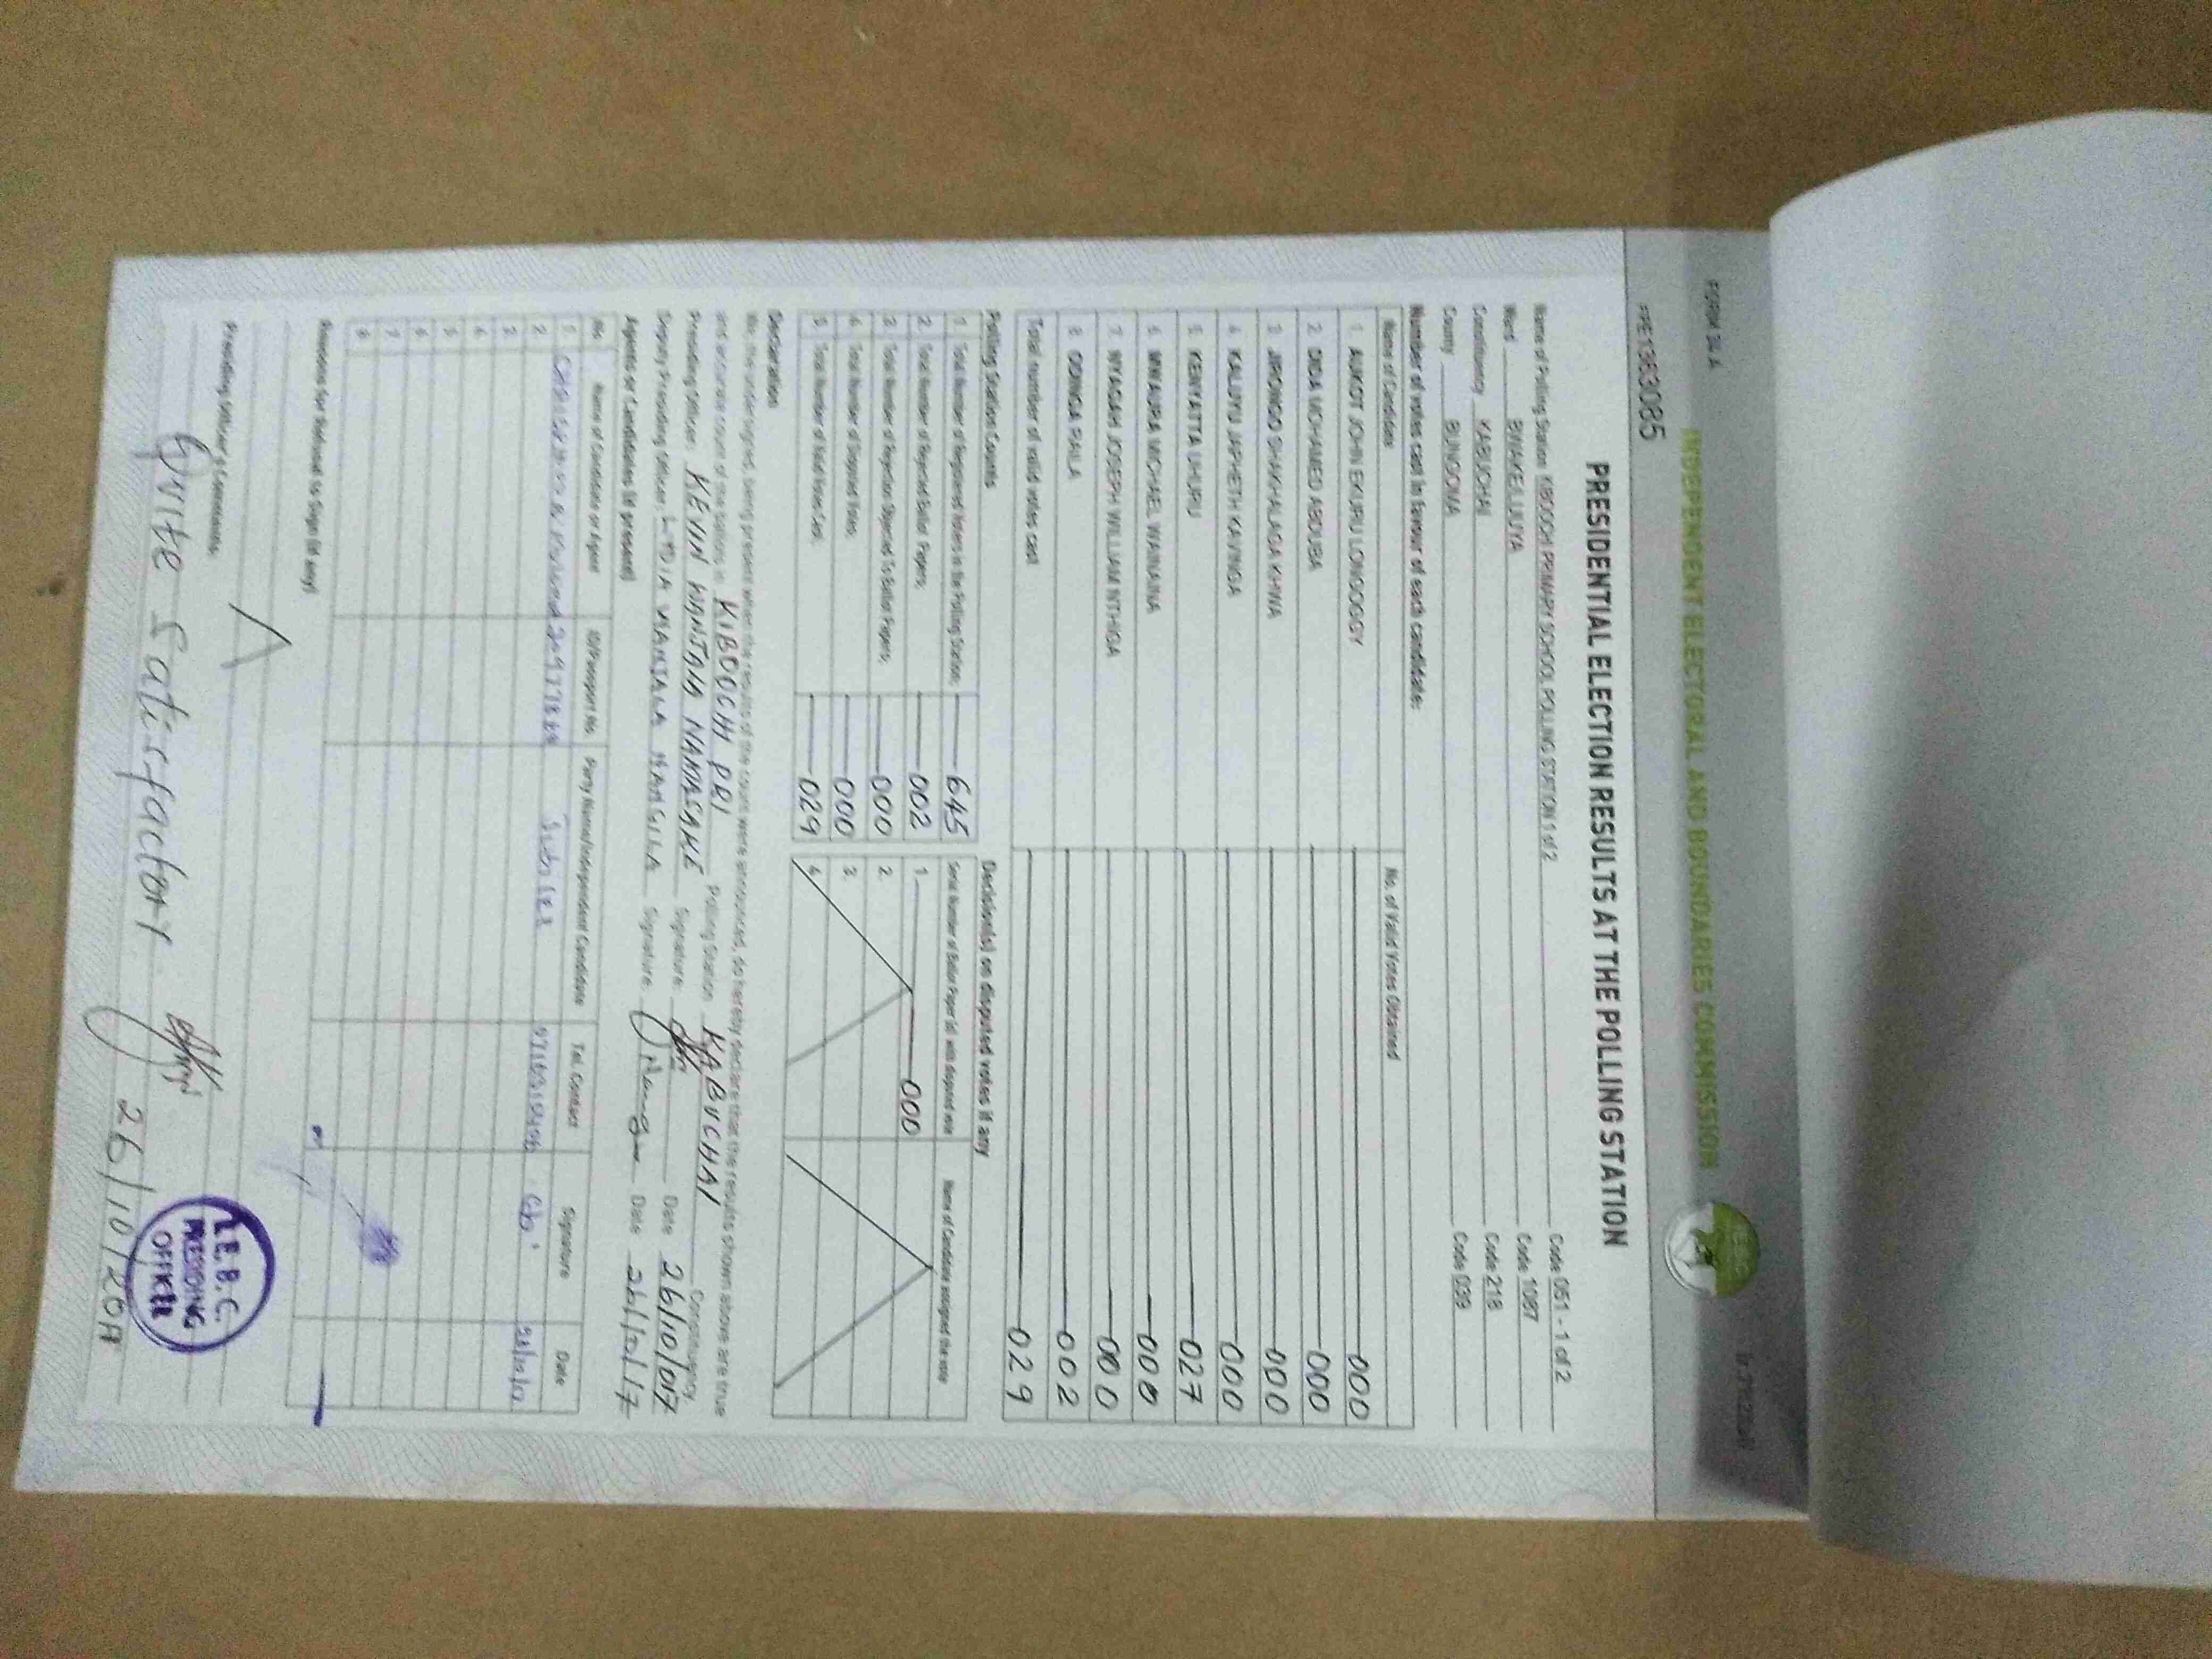 FORM 34 A
INDEPENDENT ELECTORAL AND BOUNDARIES COMMISSION
PPE1363085
PRESIDENTIAL ELECTION RESULTS AT THE POLLING STATION
Name of Polling Station KIBOOCHI PRIMARY SCHOOL POLLING STATION 1 of 2 Code 051 - 1 of 2
Ward BWAKE/LUUYA Code 1087
Constituency KABUCHAI Code 218
County BUNGOMA Code 039
Number of votes cast in favour of each candidate:
Name of Candidate No. of Valid Votes Obtained
1 AUKOT JOHN EKURU LONGOGGY 000
2 DIDA MOHAMED ABDUBA 000
3 JIRONGO SHAKHALAGA KHWA 000
4 KALUYU JAPHETH KAVINGA 000
5 KENYATTA UHURU 027
6 MWAURA MICHAEL WAINAINA 000
7 NYAGAH JOSEPH WILLIAM NTHIGA 000
8 ODINGA RAILA 002
Total number of valid votes cast 029
Polling Station Counts
1 Total Number of Registered Voters in the Polling Station; 645
2 Total Number of Rejected Ballot Papers; 002
3 Total Number of Rejection Objected To Ballot Papers; 000
4 Total Number of Disputed Votes; 000
5 Total Number of Valid Votes Cast; 029
Decision(s) on disputed votes if any
Serial Number of Ballot Paper (s) with disputed vote Name of Candidate assigned the vote
1 000
2
3
4
Declaration
We, the undersigned, being present when the results of the count were announced, do hereby declare that the results shown above are true
and accurate count of the ballots in KIBOOCHI PRI Polling Station KABUCHAI Constituency.
Presiding Officer: KEVIN Signature: Date 26/10/017
Deputy Presiding Officer: Signature Date 26/10/17
Agents or Candidates (if present)
No. Name of Candidate or Agent ID/Passport No. Party Name/Independent Candidate Tel. Contact Signature Date
1 Jubilee
2
3
4
5
6
7
8
Reasons for Refusal to Sign (if any)
Presiding Officer's Comments;
Quite Satisfactory 26/10/2017
I.E.B.C.
PRESIDING
OFFICER